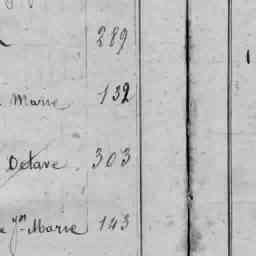 289
Marie 132
Octave 303
Marie 143